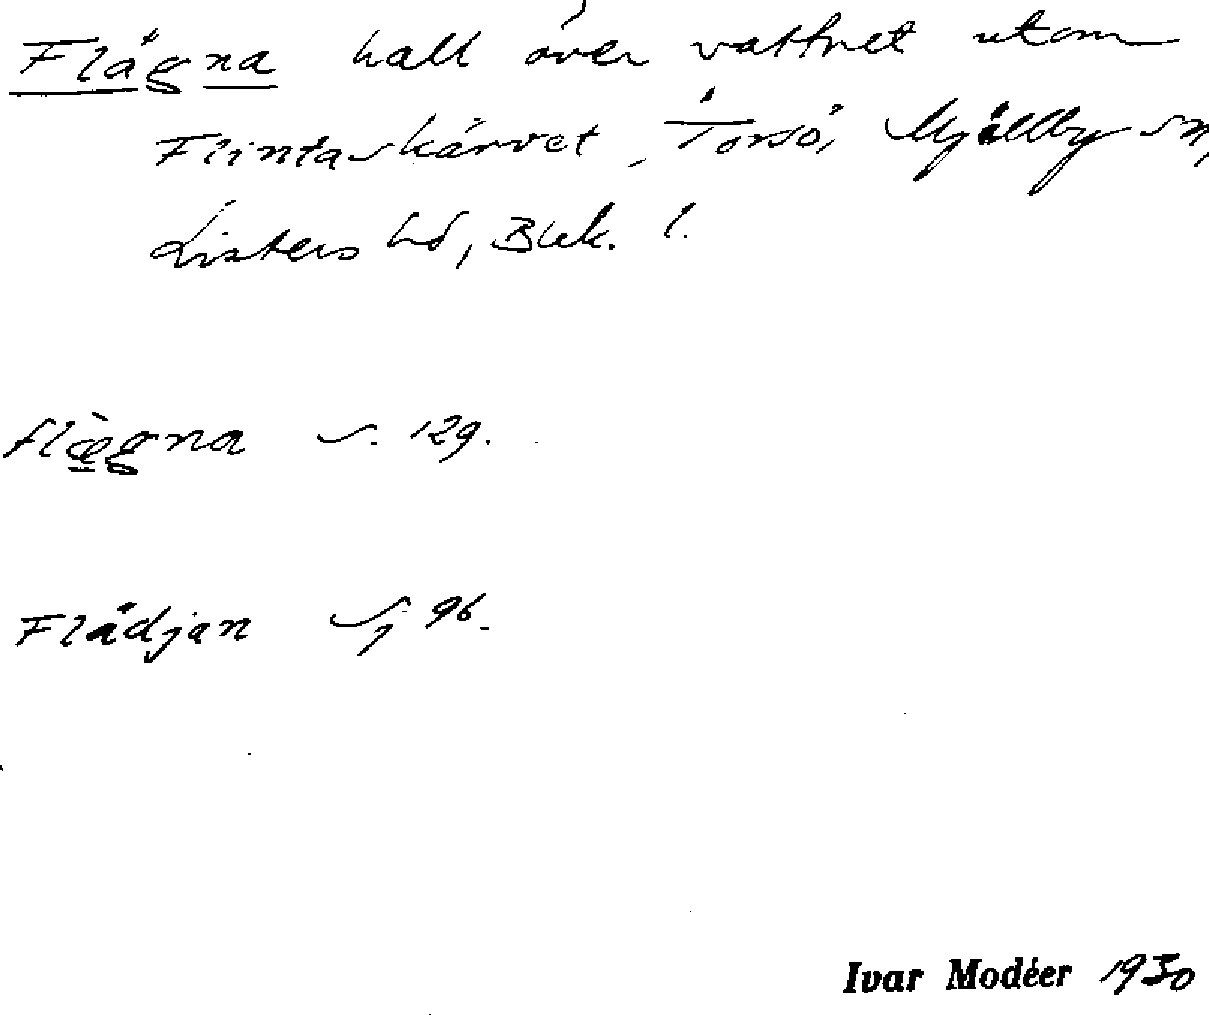 Flägna hall över vattnet utom
Flintaskärvet, Torsö, Mjällby sn,
Listers hd, Blek. l.
flæ̀gna s. 129.
Flädjan Sj 96.
Ivar Modéer 1930